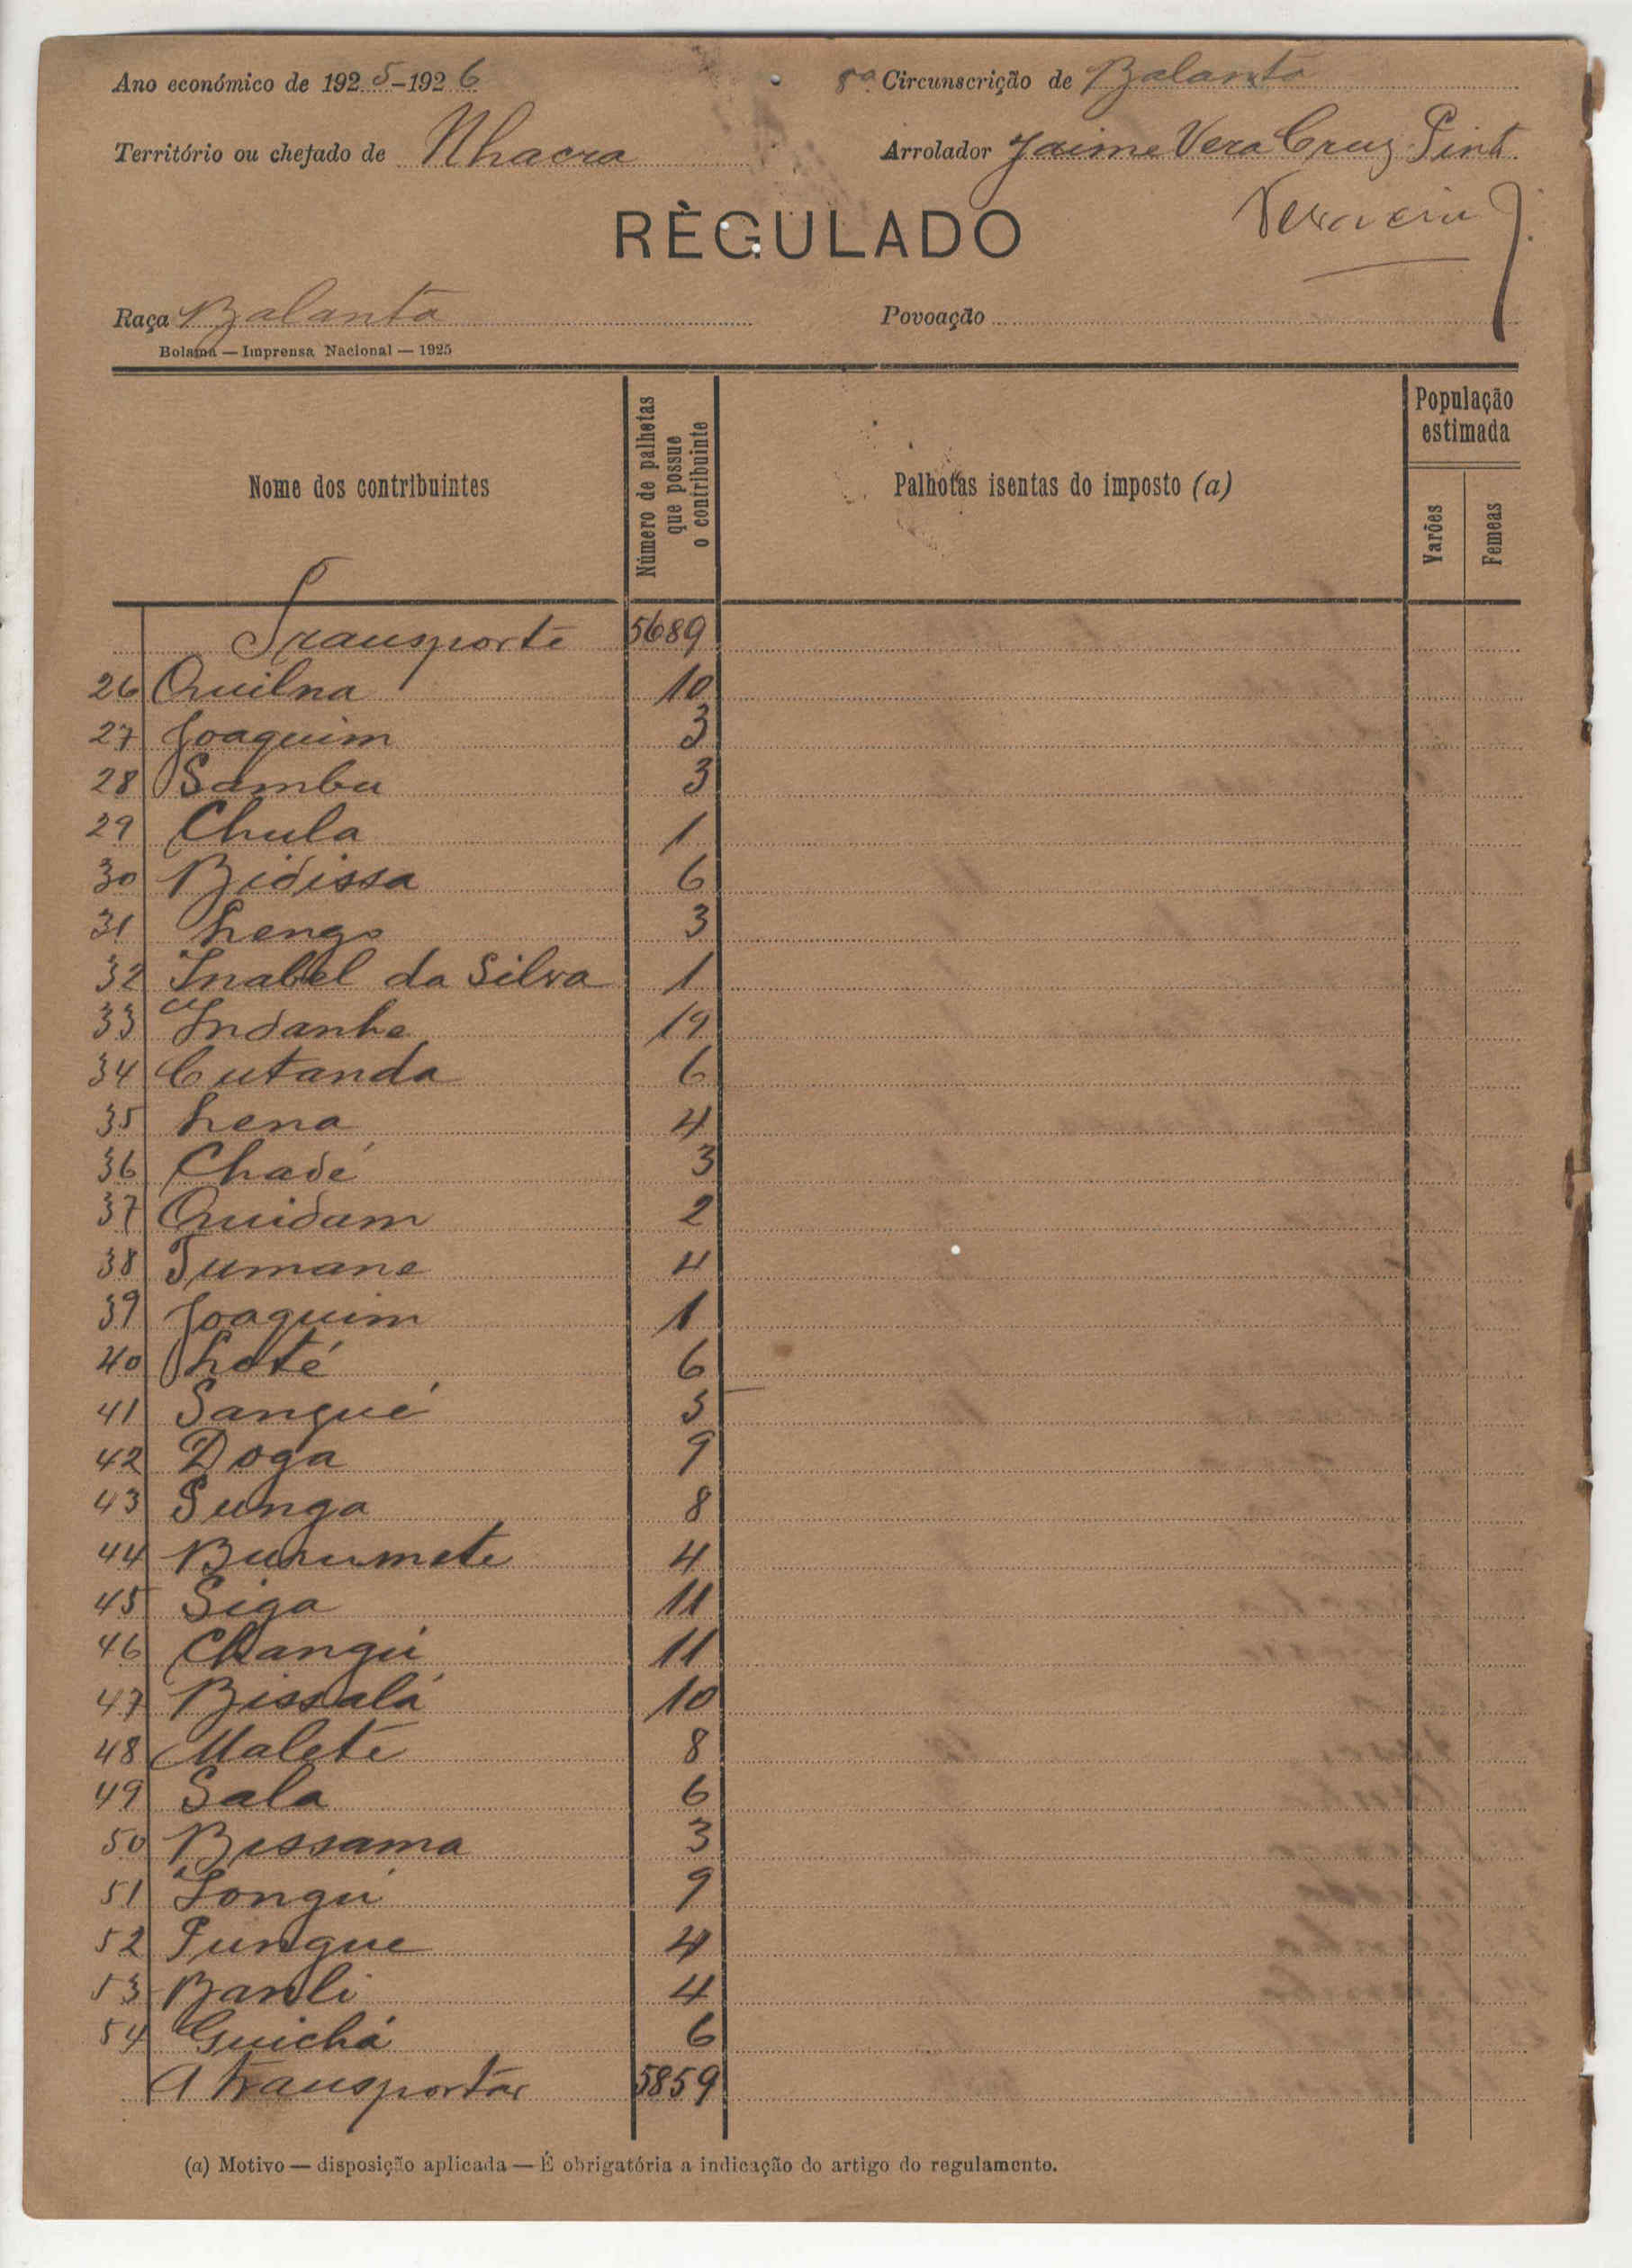 Ano económico de 1925-1926
8ª Circunscrição de Balanta
Território ou chefado de Nhacra
Arrolador Jaime Vera Cruz Pint.
REGULADO
Raça Balanta
Povoação
Bolama — Imprensa Nacional — 1925
Nome dos contribuintes
Número de palhotas que possue o contribuinte
Palhotas isentas do imposto (a)
População estimada
Varões
Femeas
Transporte 5689
26 Quilna 10
27 Joaquim 3
28 Sambu 3
29 Chula 1
30 Bidissa 6
31 Lengo 3
32 Inabel da Silva 1
33 Indanhe 19
34 Cutanda 6
35 Lena 4
36 Chadé 3
37 Quidam 2
38 Tumane 4
39 Joaquim 1
40 Loté 6
41 Sangué 5
42 Doga 9
43 Punga 8
44 Burumete 4
45 Siga 11
46 Changú 11
47 Bissalá 10
48 Malete 8
49 Sala 6
50 Bissama 3
51 Longú 9
52 Pungue 4
53 Banli 4
54 Guichá 6
A transportar 5859
(a) Motivo — disposição aplicada — É obrigatória a indicação do artigo do regulamento.